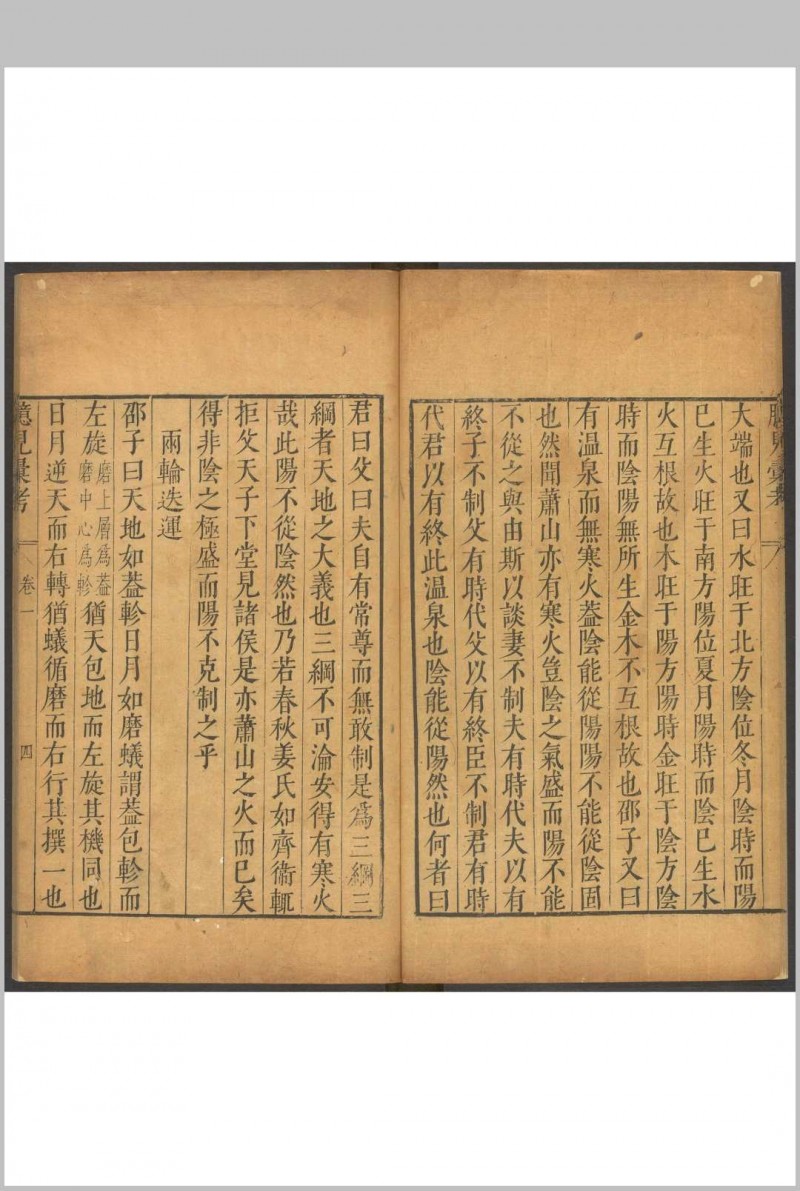 大端也又曰水旺于北方陰位冬月陰時而陽
已生火旺于南方陽位夏月陽時而陰已生水
火互根故也木旺于陽方陽時金旺于陰方陰
時而陰陽無所生金木不互根故也邵子又曰
有温泉而無寒火葢陰能從陽陽不能從陰固
也然聞蕭山亦有寒火豈陰之氣盛而陽不能
不從之與由斯以談妻不制夫有時代夫以有
終子不制父有時代父以有終臣不制君有時
代君以有終此温泉也陰能從陽然也何者曰
君曰父曰夫自有常尊而無敢制是爲三綱三
綱者天地之大義也三綱不可淪安得有寒火
哉此陽不從陰然也乃若春秋姜氏如齊衞輒
拒父天子下堂見諸侯是亦蕭山之火而已矣
得非陰之極盛而陽不克制之乎
兩輪迭運
邵子曰天地如葢軫日月如磨蟻謂葢包軫而
左旋磨上層爲葢磨中心爲軫猶天包地而左旋其機同也
日月逆天而右轉猶蟻循磨而右行其撰一也
臆見彙考
卷一
四